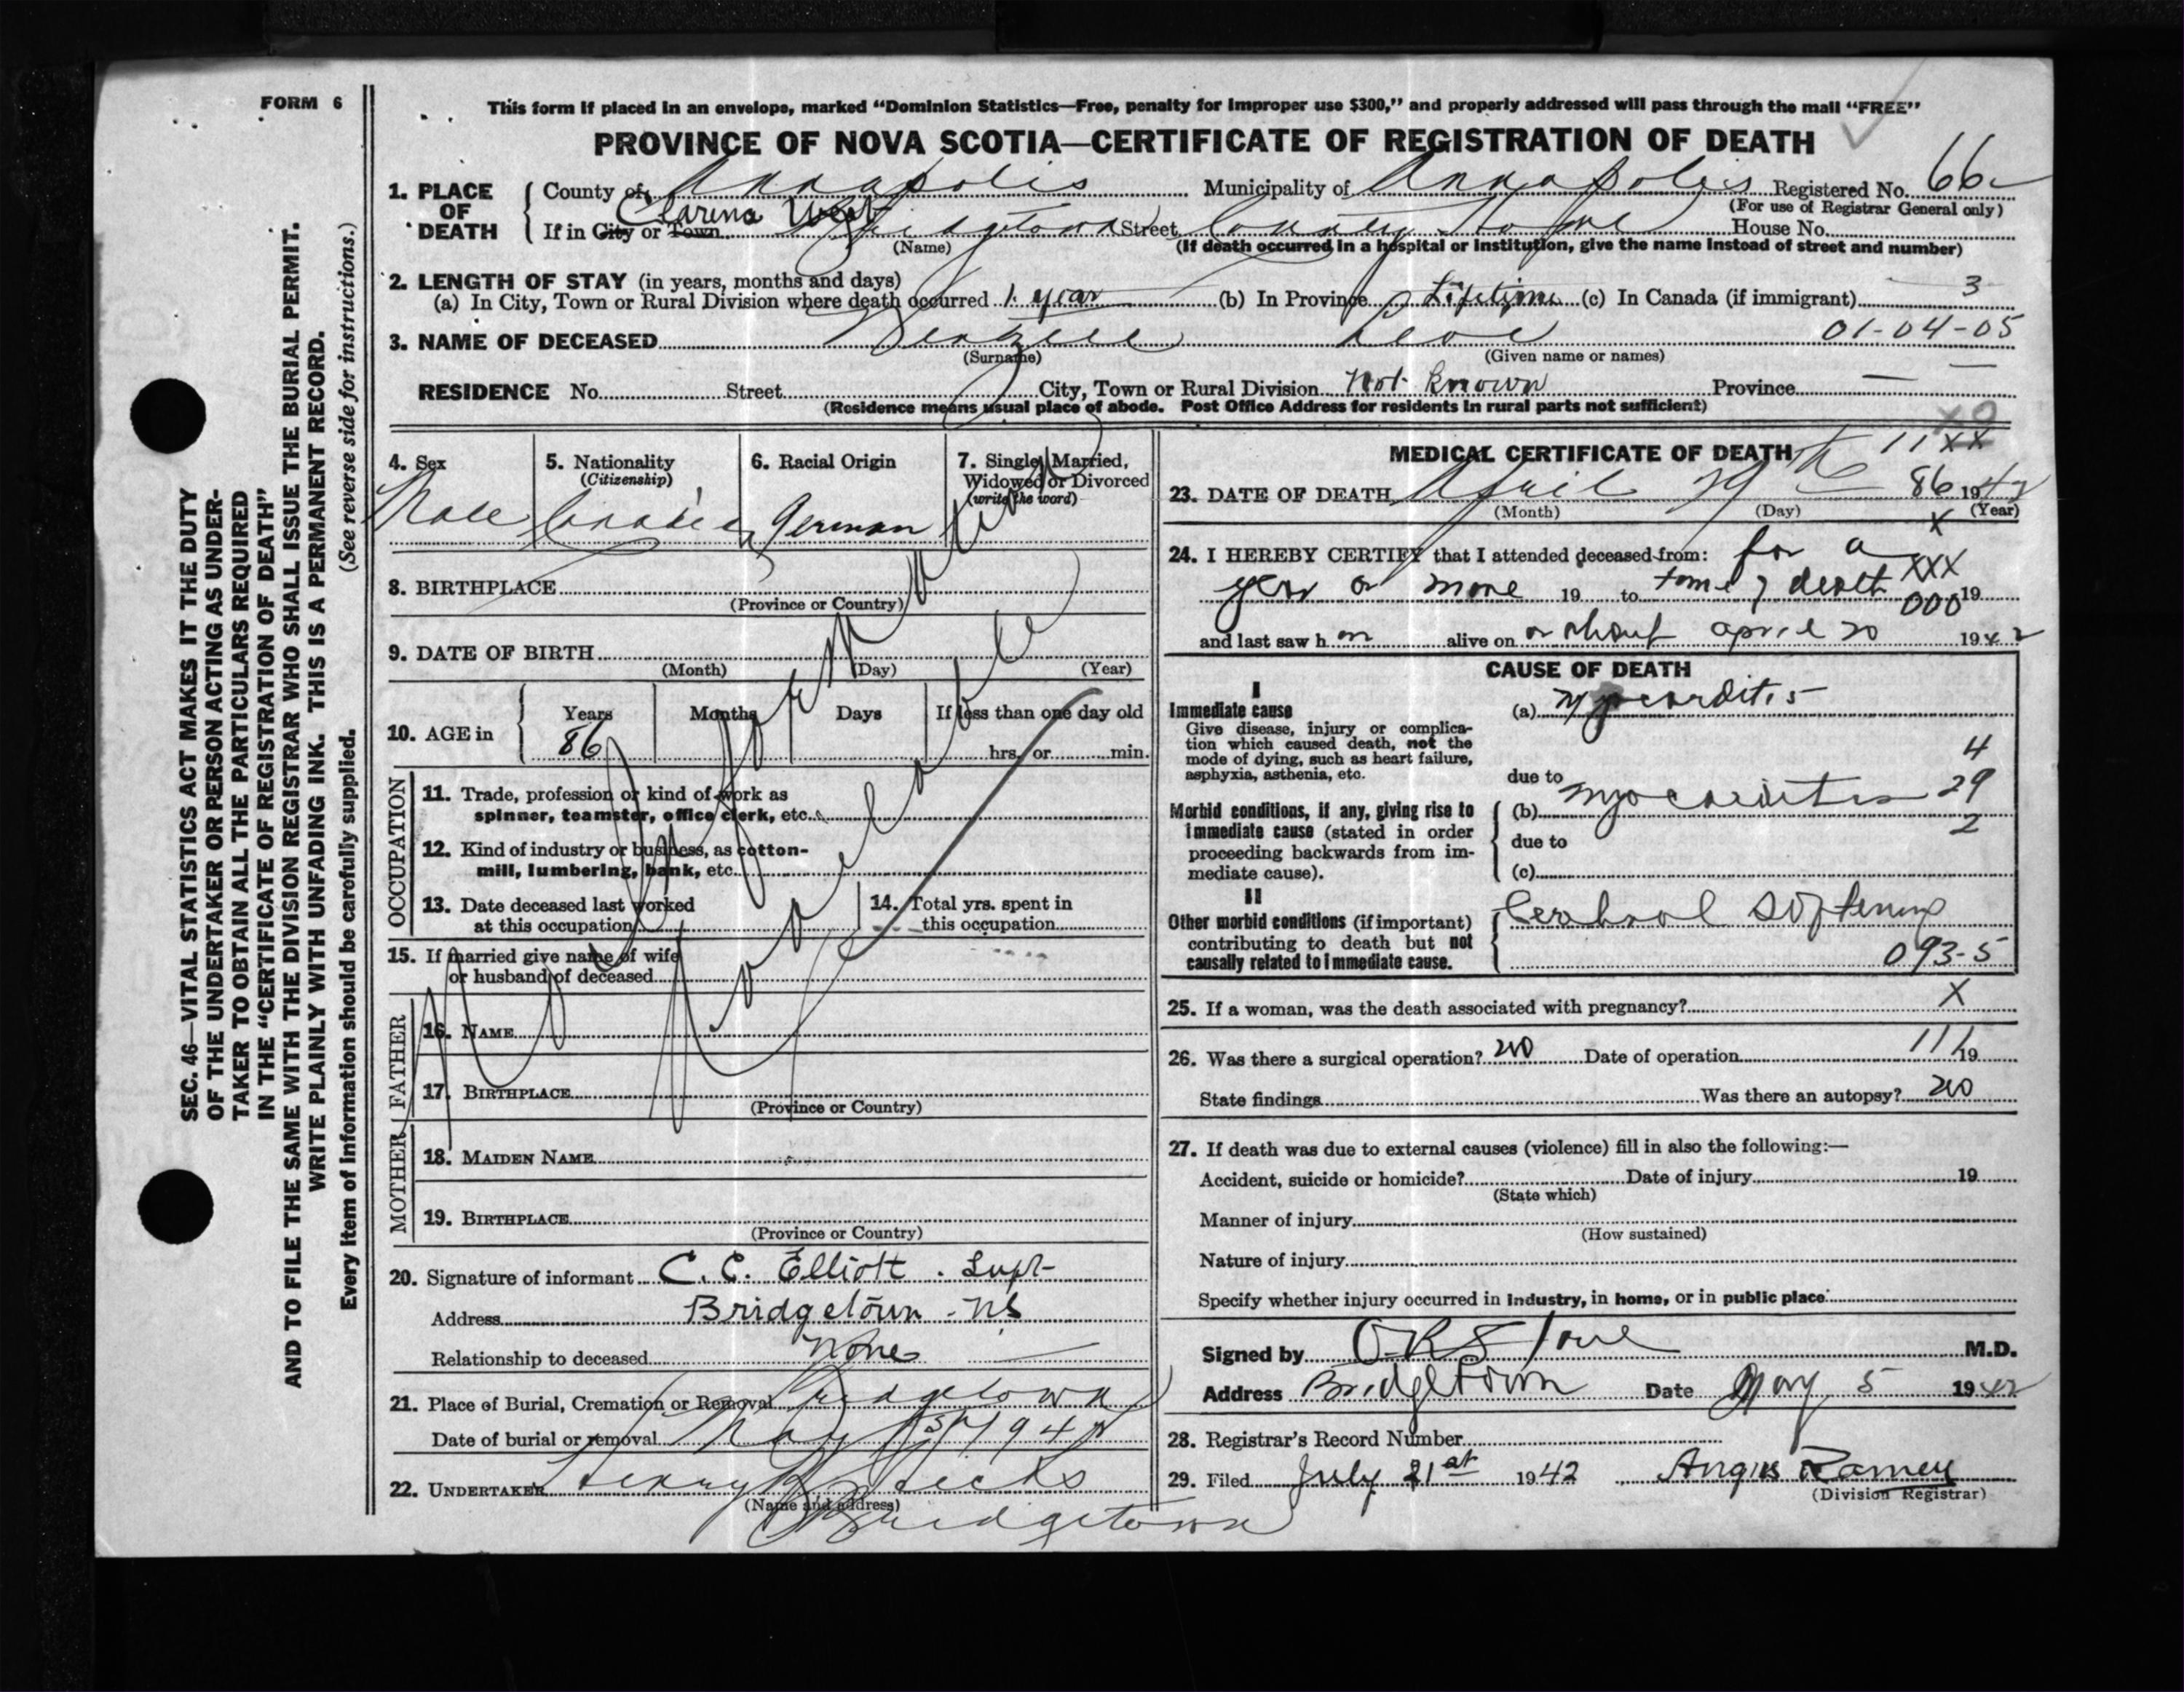 FORM 6
This form if placed in an envelope, marked “Dominion Statistics—Free, penalty for improper use $300,” and properly addressed will pass through the mail “FREE”
PROVINCE OF NOVA SCOTIA—CERTIFICATE OF REGISTRATION OF DEATH
1. PLACE OF DEATH
County of Annapolis Municipality of Annapolis Registered No. 66
(For use of Registrar General only)
Clarence West
If in City or Town Bridgetown Street County Home House No.
(Name) (If death occurred in a hospital or institution, give the name instead of street and number)
2. LENGTH OF STAY (in years, months and days)
(a) In City, Town or Rural Division where death occurred 1 year (b) In Province Lifetime (c) In Canada (if immigrant) 3
3. NAME OF DECEASED 01-04-05
(Surname) (Given name or names)
RESIDENCE No. Street City, Town or Rural Division Not Known Province —
(Residence means usual place of abode. Post Office Address for residents in rural parts not sufficient)
4. Sex
Male
5. Nationality
(Citizenship)
Canadian
6. Racial Origin
German
7. Single, Married,
Widowed or Divorced
(write the word)
8. BIRTHPLACE
(Province or Country)
9. DATE OF BIRTH
(Month) (Day) (Year)
10. AGE in
Years Months Days If less than one day old
86 hrs. or min.
OCCUPATION
11. Trade, profession or kind of work as
spinner, teamster, office clerk, etc.
12. Kind of industry or business, as cotton-
mill, lumbering, bank, etc.
13. Date deceased last worked
at this occupation
14. Total yrs. spent in
this occupation
15. If married give name of wife
or husband of deceased
No Information
Available
FATHER
16. NAME
17. BIRTHPLACE
(Province or Country)
MOTHER
18. MAIDEN NAME
19. BIRTHPLACE
(Province or Country)
20. Signature of informant C. C. Elliott . Supt
Address Bridgetown - NS
Relationship to deceased None
21. Place of Burial, Cremation or Removal Bridgetown
Date of burial or removal May 1st 1942
22. UNDERTAKER Henry Hicks
(Name and address)
Bridgetown
MEDICAL CERTIFICATE OF DEATH 11 XX
23. DATE OF DEATH April 29th 86 1942
(Month) (Day) (Year)
X
24. I HEREBY CERTIFY that I attended deceased from: for a
XXX
year or more 19 to time of death 19
000
and last saw h m alive on or about april 20 1942
CAUSE OF DEATH
I
Immediate cause
Give disease, injury or complica-
tion which caused death, not the
mode of dying, such as heart failure,
asphyxia, asthenia, etc.
(a) Myocarditis
4
due to
29
Morbid conditions, if any, giving rise to
immediate cause (stated in order
proceeding backwards from im-
mediate cause).
(b) Myocarditis
2
due to
(c)
II
Other morbid conditions (if important)
contributing to death but not
causally related to immediate cause.
Cerebral softening
093-5
25. If a woman, was the death associated with pregnancy? X
26. Was there a surgical operation? no Date of operation 111 19
State findings Was there an autopsy? no
27. If death was due to external causes (violence) fill in also the following:—
Accident, suicide or homicide? Date of injury 19
(State which)
Manner of injury
(How sustained)
Nature of injury
Specify whether injury occurred in industry, in home, or in public place
Signed by M.D.
Address Bridgetown Date May 5 1942
28. Registrar's Record Number
29. Filed July 21st 1942 Angus Ramey
(Division Registrar)
SEC. 46—VITAL STATISTICS ACT MAKES IT THE DUTY
OF THE UNDERTAKER OR PERSON ACTING AS UNDER-
TAKER TO OBTAIN ALL THE PARTICULARS REQUIRED
IN THE “CERTIFICATE OF REGISTRATION OF DEATH”
AND TO FILE THE SAME WITH THE DIVISION REGISTRAR WHO SHALL ISSUE THE BURIAL PERMIT.
WRITE PLAINLY WITH UNFADING INK. THIS IS A PERMANENT RECORD.
Every item of information should be carefully supplied. (See reverse side for instructions.)